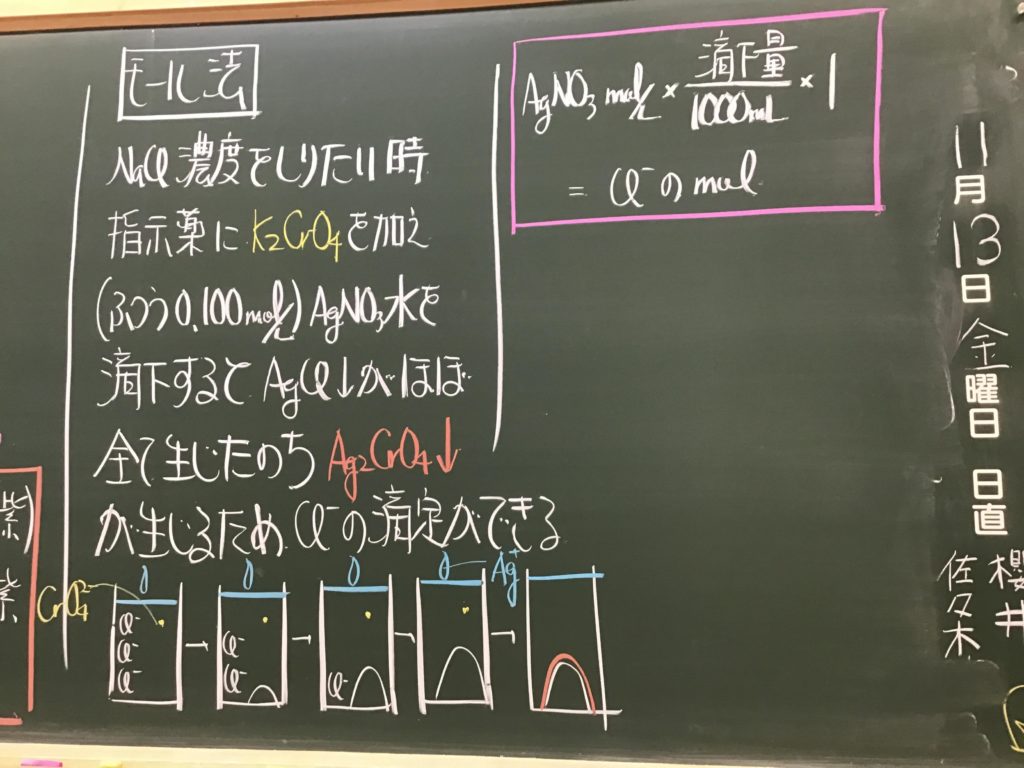 モール法
NaCl濃度をしりたい時
指示薬にK₂CrO₄を加え
(ふつう0.100mol/L)AgNO₃水を
滴下するとAgCl↓がほぼ
全て生じたのちAg₂CrO₄↓
が生じるためCl⁻の滴定ができる
CrO₄²⁻
Ag⁺
Cl⁻ Cl⁻ Cl⁻
Cl⁻ Cl⁻
Cl⁻
AgNO₃ mol/L × 滴下量/1000mL × 1
= Cl⁻のmol
11月13日金曜日 日直
櫻井
佐々木
紫)
紫